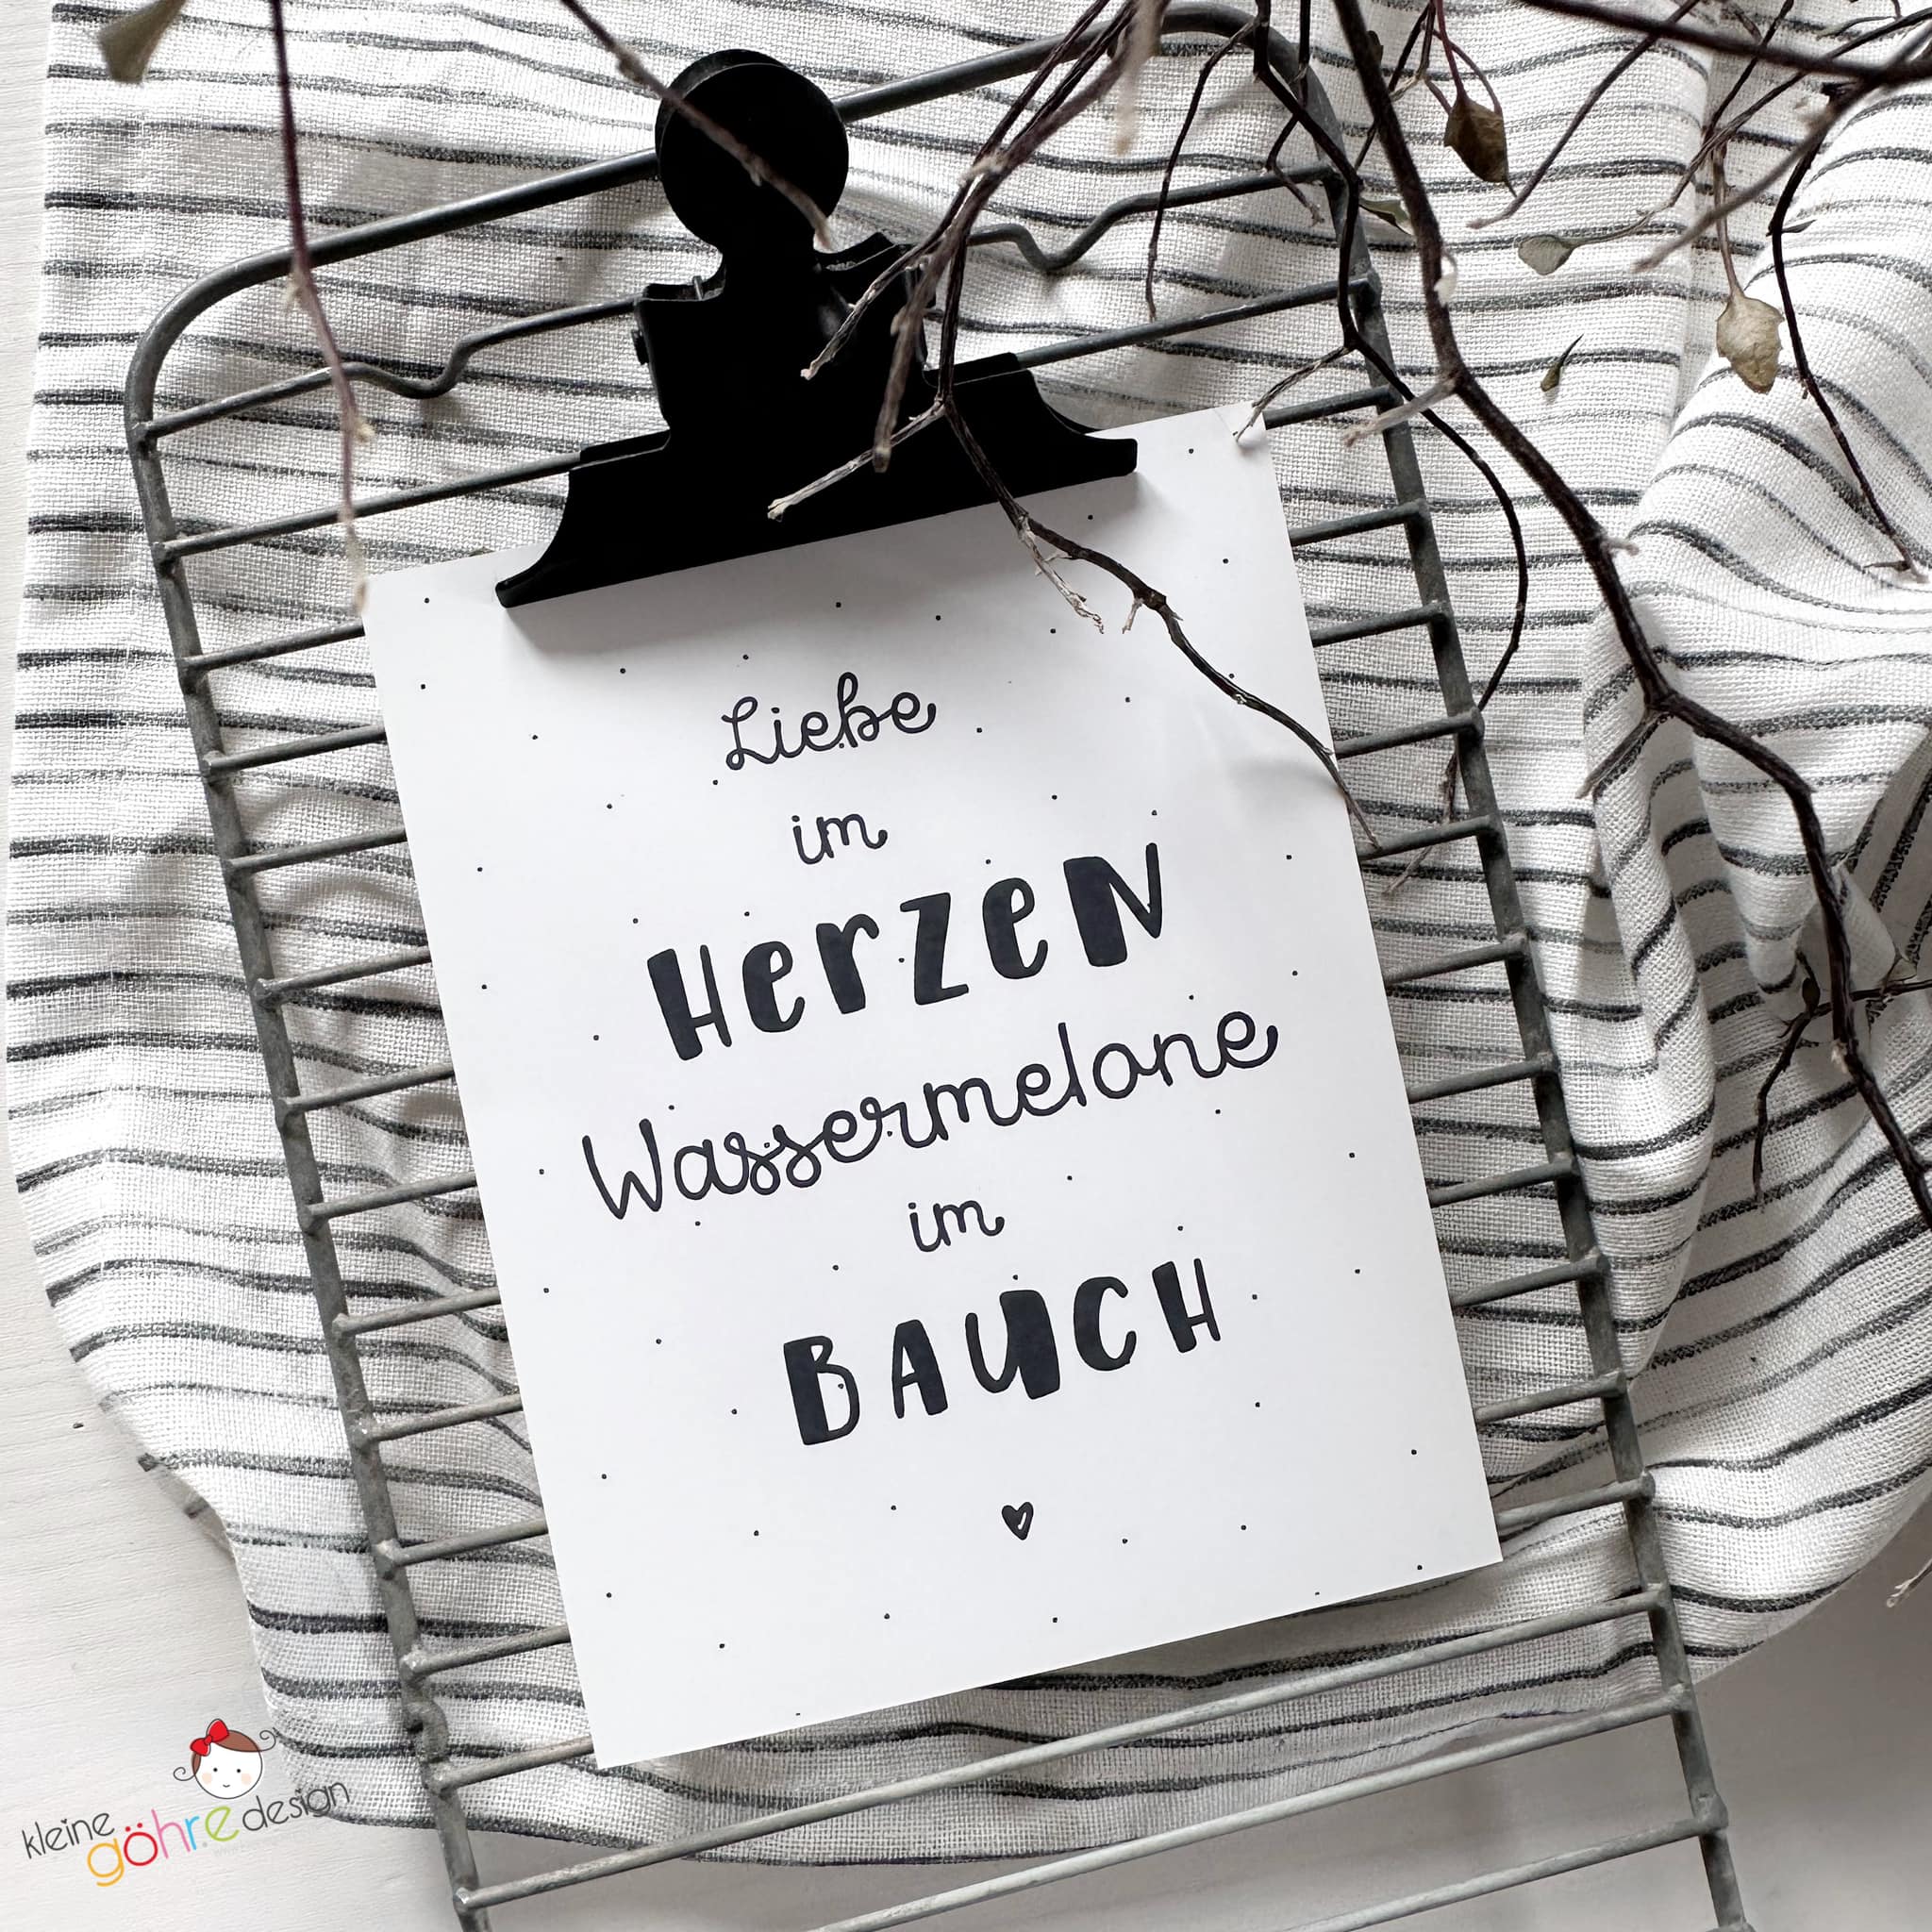 Liebe
im
HerzeN
Wassermelone
im
BAUCH
kleine
göhre design